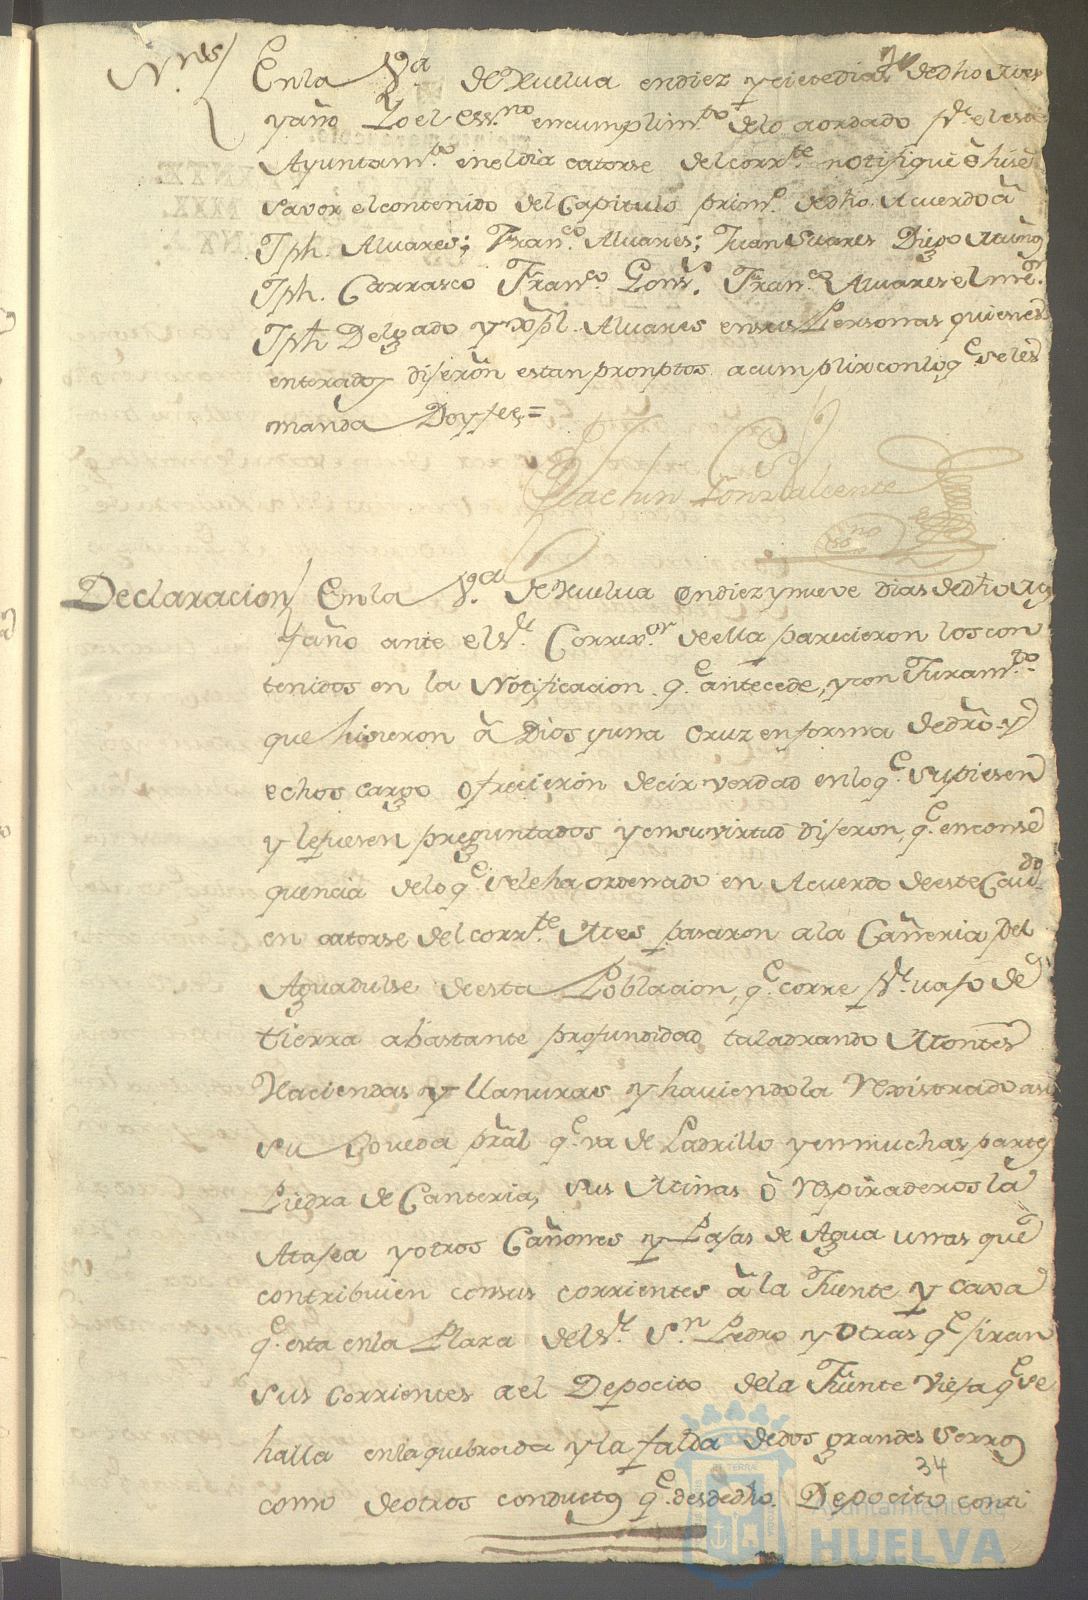 N.nes
En la V.a de Huelva en diez y ciete dias de dho Mes
y año Yo el Ess.no en cumplim.to de lo acordado p.r el este
Ayuntam.to en el dia catorse del corr.te notifiqué ê hise
savor el contenido del Capitulo prim.o de dho Acuerdo â
Jph. Alvares; Fran.co Alvares; Juan Suares Diego Muños
Jph. Carrasco Fran.co Gons.s Fran.co Alvares el mẽr.
Jph Delgado y Xptl. Alvares en sus Personas quienes
enterados dijeron estan promptos a cumplir con lo q.e se les
manda Doy fee=
Joachin Gonz Valiente
Ess.no
Declaracion
En la V.a de Huelva en diez y nueve dias de dho Mes
y año ante el S.r Correx.or de ella parecieron los con
tenidos en la Notificacion q.e antecede, y con Juram.to
que hisieron â Dios y una Cruz en forma de dro y
echos cargo ofrecieron decir verdad en lo q.e supiesen
y le fuesen preguntados y en su virtud dijeron, q.e en conse
quencia de lo q.e se le ha ordenado en Acuerdo de este Cavdo
en catorse del corr.te Mes pasaron a la Cañeria del
Agua dulse de esta Poblacion, q.e corre p.r vajo de
tierra a bastante profundidad taladrando Montes
Haciendas y llanuras y haviendola rexistrado asi
su Boveda pral q.e va de Ladrillo y en muchas partes
Piedra de Canteria, sus Minas ô respiraderos la
Atajea y otros Cañones y Lajas de Agua unas que
contribuien con sus corrientes â la Fuente y caxa
q.e esta en la Plaza del S.r S.n Pedro y otras q.e jiran
sus corrientes a el Depocito de la Fuente vieja q.e se
halla en la quebrada y la falda de dos grandes Serros
como de otros conductos q.e desde dho. Depocito conti
34
Ayuntamiento de
HUELVA